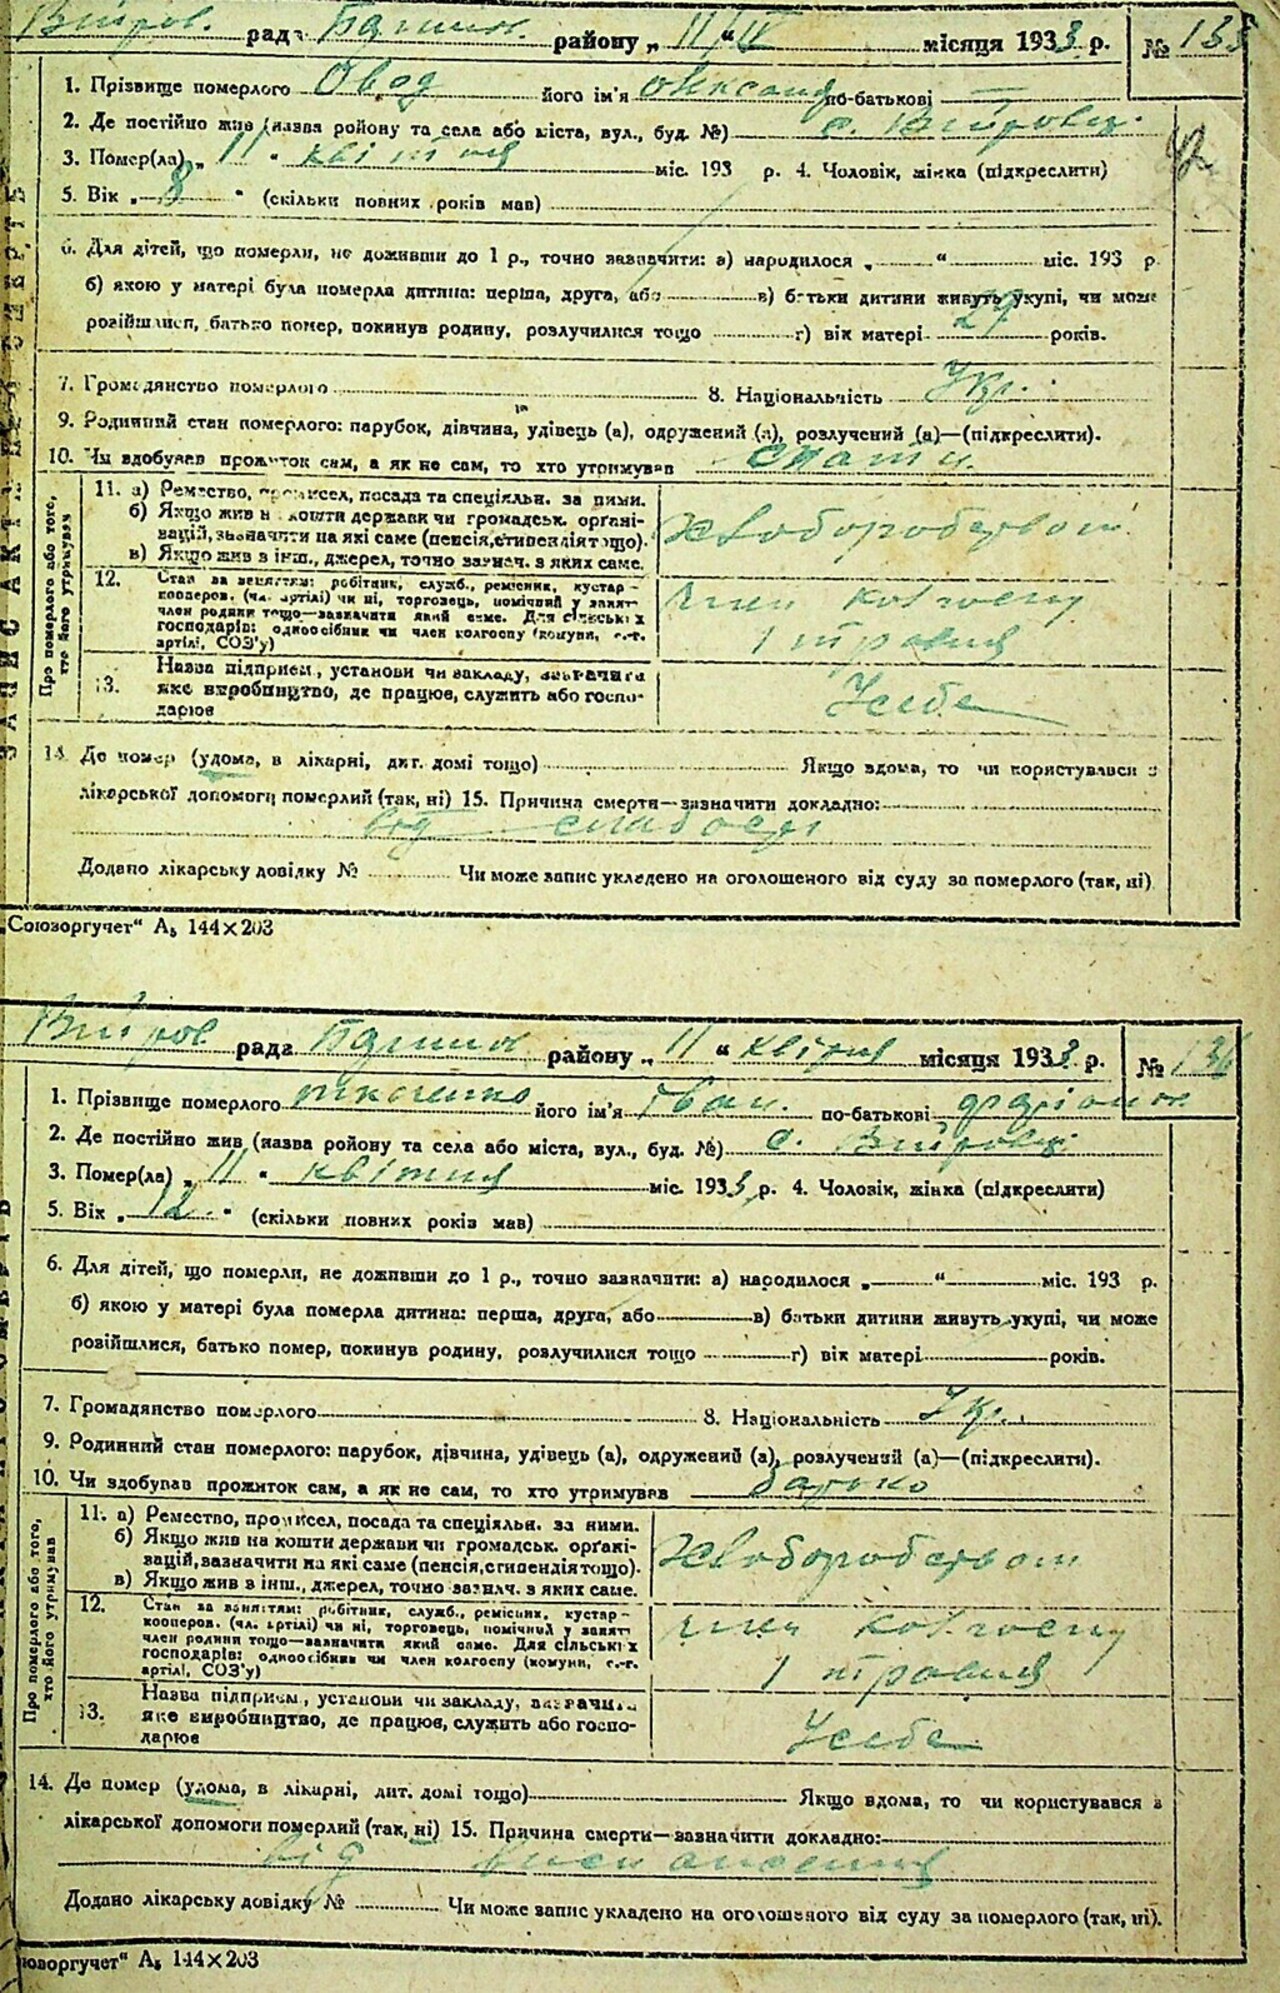 Вийров. рада Бахмач. району „ 11 “ IV місяця 1933 р. № 135
1. Прізвище померлого Овод його ім'я Олександ по-батькові —
2. Де постійно жив (назва району та села або міста, вул., буд. №) с.
3. Помер(ла) „ 11 “ квітня міс. 193 р. 4. Чоловік, жінка (підкреслити)
5. Вік „ 8 “ (скільки повних років мав)
6. Для дітей, що померли, не доживши до 1 р., точно зазначити: а) народилося „ “ міс. 193 р.
б) якою у матері була померла дитина: перша, друга, або в) батьки дитини живуть укупі, чи може
розійшлися, батько помер, покинув родину, розлучилися тощо г) вік матері 27 років.
7. Громадянство померлого 8. Національність Укр.
9. Родинний стан померлого: парубок, дівчина, удівець (а), одружений (а), розлучений (а)—(підкреслити).
10. Чи здобував прожиток сам, а як не сам, то хто утримував
Про померлого або того, хто його утримував
11. а) Ремество, промисел, посада та спеціяльн. за ними.
б) Якщо жив на кошти держави чи громадськ. органі-
зацій, зазначити на які саме (пенсія, стипендія тощо).
в) Якщо жив з інш., джерел, точно зазнач. з яких саме.
Хлоборобством
12. Стан за заняттям: робітник, служб., ремісник, кустар-
кооперов. (чл. артілі) чи ні, торговець, помічний у занят.
член родини тощо—зазначити який саме. Для сільських
господарів: одноосібник чи член колгоспу (комуни, с.-г.
артілі, СОЗ'у)
член колгоспу
1 травня
13. Назва підприєм., установи чи закладу, зазначити
яке виробництво, де працює, служить або госпо-
дарює
У себе
14. Де помер (удома, в лікарні, дит. домі тощо) Якщо вдома, то чи користувався з
лікарської допомоги померлий (так, ні) 15. Причина смерти—зазначити докладно:
від слабости
Додано лікарську довідку № Чи може запис укладено на оголошеного від суду за померлого (так, ні)
„Союзоргучет“ А₅ 144×203
Вийров рада Бахмач району „ 11 “ квітня місяця 1933 р. № 136
1. Прізвище померлого Ткаченко його ім'я Іван. по-батькові
2. Де постійно жив (назва району та села або міста, вул., буд. №) с.
3. Помер(ла) „ 11 “ квітня міс. 1933 р. 4. Чоловік, жінка (підкреслити)
5. Вік „ 12. “ (скільки повних років мав)
6. Для дітей, що померли, не доживши до 1 р., точно зазначити: а) народилося „ “ міс. 193 р.
б) якою у матері була померла дитина: перша, друга, або в) батьки дитини живуть укупі, чи може
розійшлися, батько помер, покинув родину, розлучилися тощо г) вік матері років.
7. Громадянство померлого 8. Національність Укр.
9. Родинний стан померлого: парубок, дівчина, удівець (а), одружений (а), розлучений (а)—(підкреслити).
10. Чи здобував прожиток сам, а як не сам, то хто утримував батько
Про померлого або того, хто його утримував
11. а) Ремество, промисел, посада та спеціяльн. за ними.
б) Якщо жив на кошти держави чи громадськ. органі-
зацій, зазначити на які саме (пенсія, стипендія тощо).
в) Якщо жив з інш., джерел, точно зазнач. з яких саме.
Хлоборобством
12. Стан за заняттям: робітник, служб., ремісник, кустар-
кооперов. (чл. артілі) чи ні, торговець, помічний у занят.
член родини тощо—зазначити який саме. Для сільських
господарів: одноосібник чи член колгоспу (комуни, с.-г.
артілі, СОЗ'у)
член колгоспу
1 травня
13. Назва підприєм., установи чи закладу, зазначити
яке виробництво, де працює, служить або госпо-
дарює
У себе
14. Де помер (удома, в лікарні, дит. домі тощо) Якщо вдома, то чи користувався з
лікарської допомоги померлий (так, ні) 15. Причина смерти—зазначити докладно:
від виснаження
Додано лікарську довідку № Чи може запис укладено на оголошеного від суду за померлого (так, ні).
„Союзоргучет“ А₅ 144×203